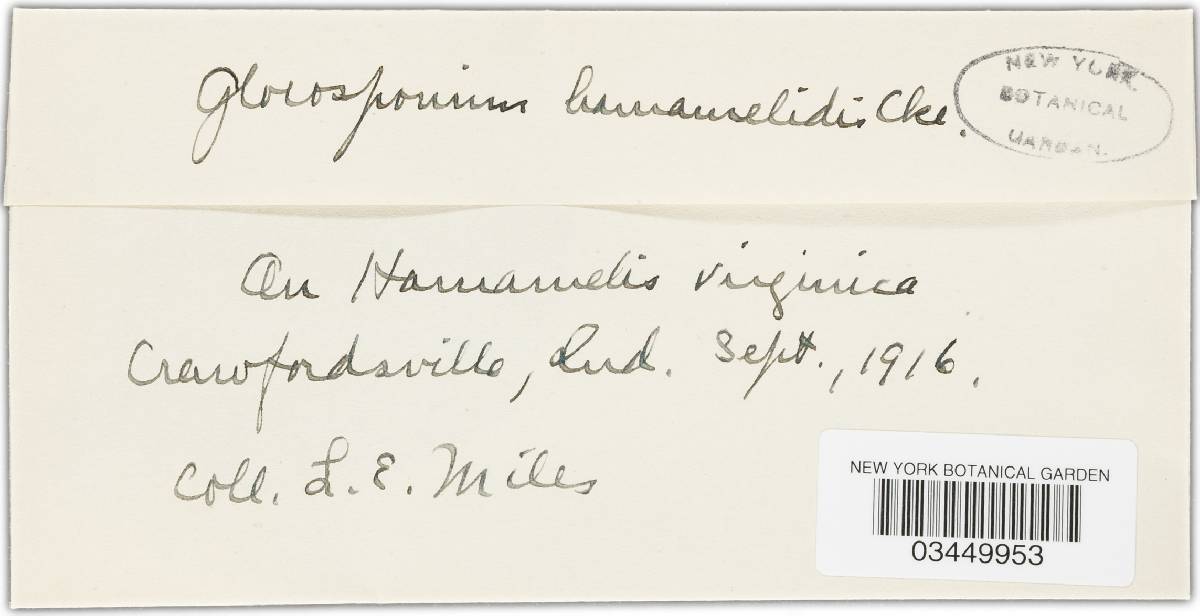 Gloeosporium hamamelidis Cke.
NEW YORK
BOTANICAL
GARDEN.
On Hamamelis virginica
Crawfordsville, Ind. Sept., 1916.
Coll. L. E. Miles
NEW YORK BOTANICAL GARDEN
03449953